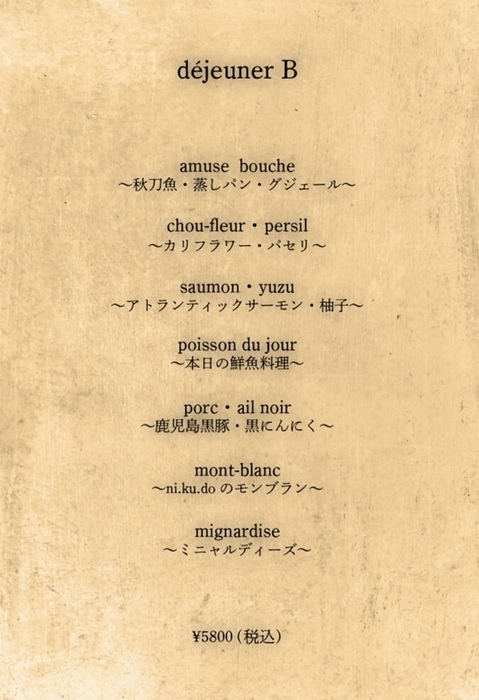 déjeuner B
amuse bouche
～秋刀魚・蒸しパン・グジェール～
chou-fleur・persil
～カリフラワー・パセリ～
saumon・yuzu
～アトランティックサーモン・柚子～
poisson du jour
～本日の鮮魚料理～
porc・ail noir
～鹿児島黒豚・黒にんにく～
mont-blanc
～ni.ku.do のモンブラン～
mignardise
～ミニャルディーズ～
¥5800（税込）